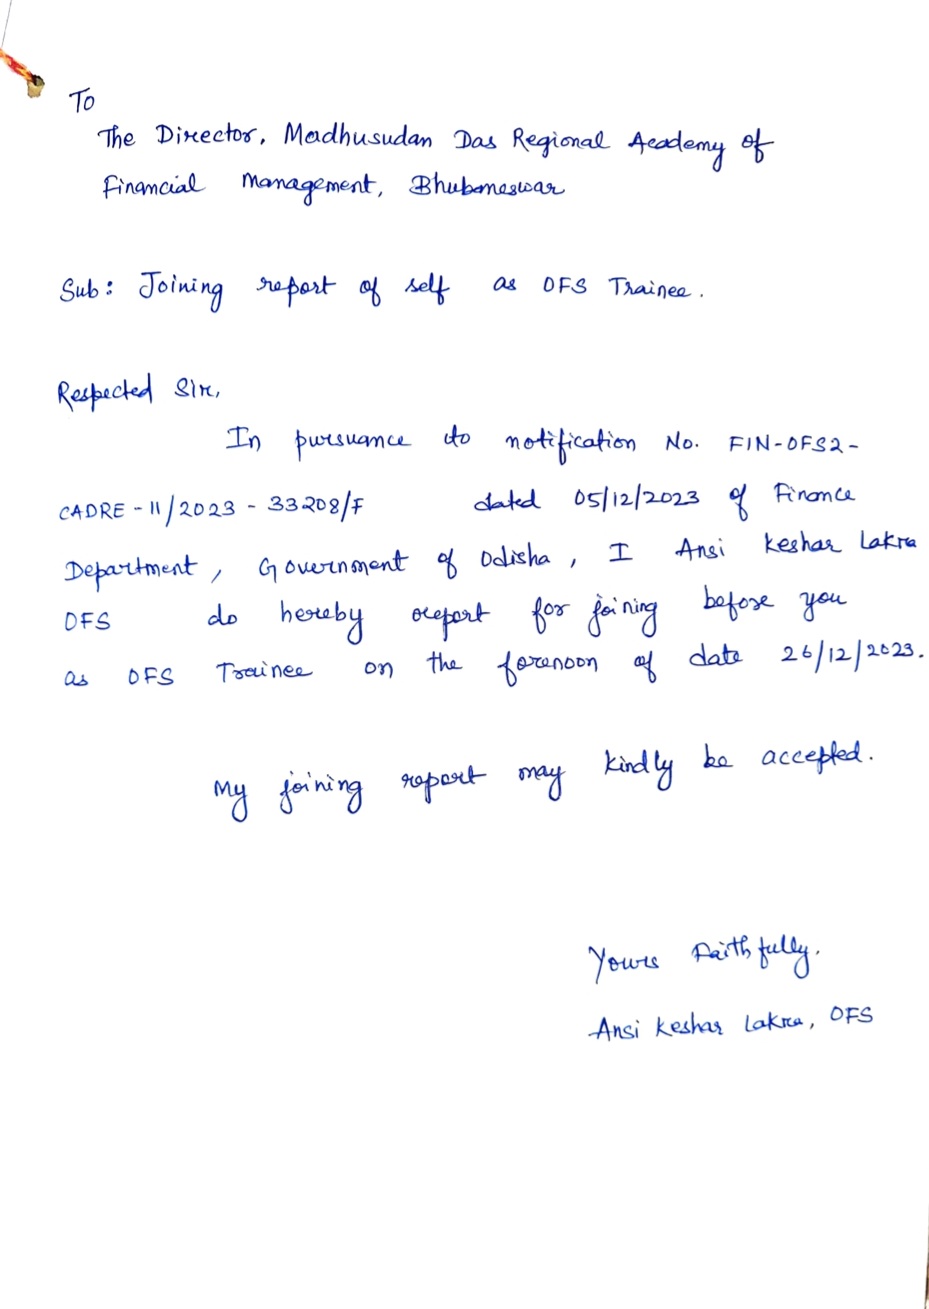 To
The Director, Madhusudan Das Regional Academy of
Financial Management, Bhubaneswar
Sub: Joining report of self as OFS Trainee.
Respected Sir,
In pursuance to notification No. FIN-OFS2-
CADRE-11/2023-33208/F dated 05/12/2023 of Finance
Department, Government of Odisha, I Ansi Keshar Lakra
OFS do hereby report for joining before you
as OFS Trainee on the forenoon of date 26/12/2023.
My joining report may kindly be accepted.
Yours Faithfully,
Ansi Keshar Lakra, OFS